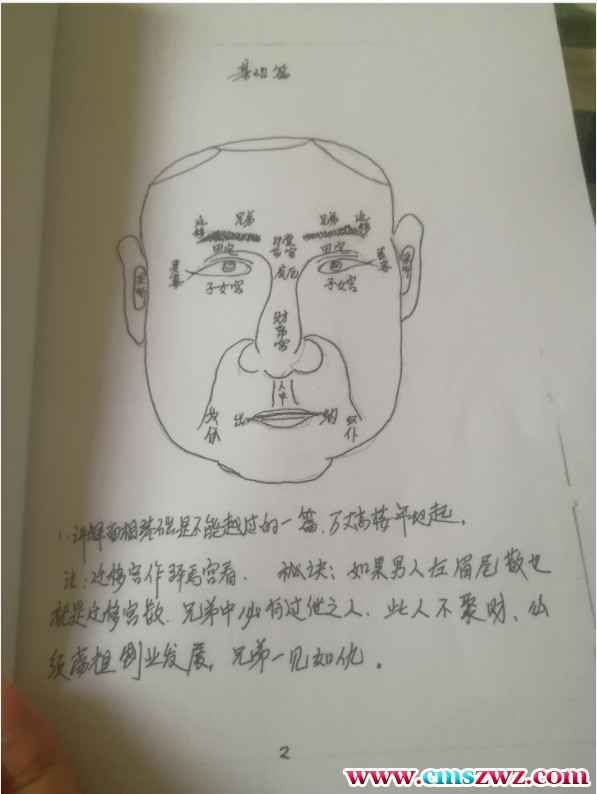 基础篇
迁移 兄弟 兄弟 迁移
印堂
命宫
田宅 田宅
疾厄
妻妾 妻妾
子女宫 子女宫
财帛宫
人中
奴仆 出 纳 奴仆
1.详解面相基础是不能越过的一篇.万丈高楼平地起.
注:迁移宫作驿马宫看. 秘诀:如果男人左眉尾散也
就是迁移宫散.兄弟中必有过继之人.此人不聚财、必
须离祖创业发展,兄弟一见如仇。
2
www.cmszwz.com